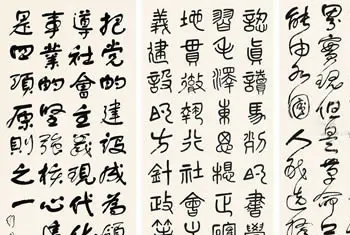 累實現但是革命
能由各國人民選擇
認真讀馬列的書學
習毛澤東思想正確
地貫徹執行社會
義建設的方針政策
把党的建設成為領
導社會主義現代化
事業的堅強核心
是四項原則之一